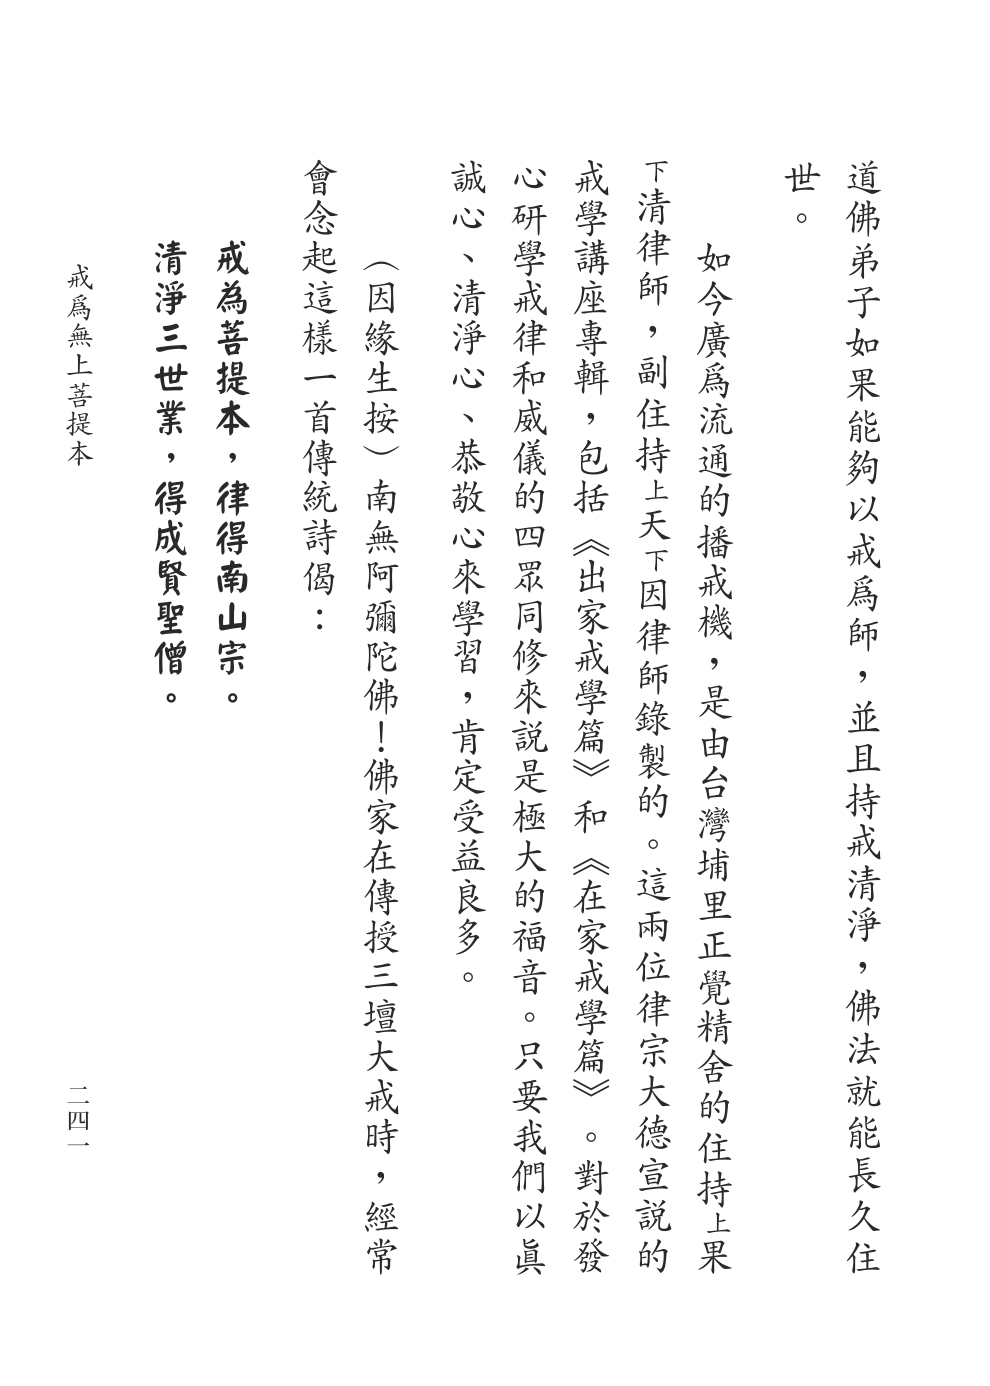 道佛弟子如果能夠以戒爲師，並且持戒清淨，佛法就能長久住
世。
如今廣爲流通的播戒機，是由台灣埔里正覺精舍的住持上果
下清律師，副住持上天下因律師錄製的。這兩位律宗大德宣説的
戒學講座專輯，包括《出家戒學篇》和《在家戒學篇》。對於發
心研學戒律和威儀的四眾同修來説是極大的福音。只要我們以眞
誠心、清淨心、恭敬心來學習，肯定受益良多。
（因緣生按）南無阿彌陀佛！佛家在傳授三壇大戒時，經常
會念起這樣一首傳統詩偈：
戒為菩提本，律得南山宗。
清淨三世業，得成賢聖僧。
戒爲無上菩提本
二四一